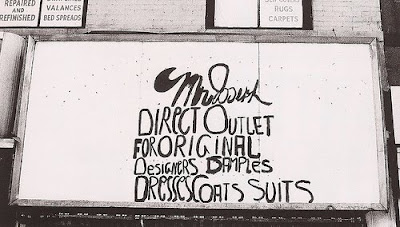 REPAIRED
AND
REFINISHED
VALANCES
BED SPREADS
RUGS
CARPETS
DIRECT OUTLET
FOR ORIGINAL
DESIGNERS SAMPLES
DRESSES COATS SUITS